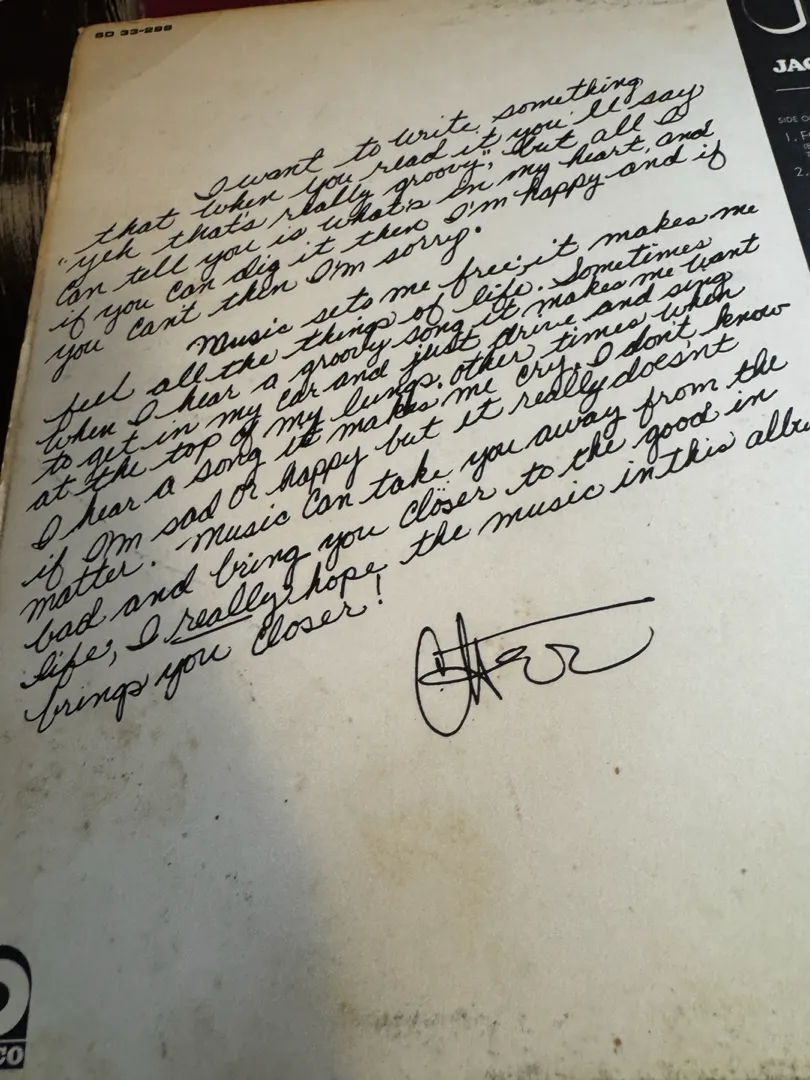 SD 33-296
I want to write something
that when you read it you'll say
"yeh that's really groovy," but all I
can tell you is what's in my heart, and
if you can dig it then I'm happy and if
you can't then I'm sorry.
Music sets me free, it makes me
feel all the things of life. Sometimes
when I hear a groovy song it makes me want
to get in my car and just drive and sing
at the top of my lungs, other times when
I hear a song it makes me cry, I don't know
if I'm sad or happy but it really doesn't
matter. Music can take you away from the
bad and bring you closer to the good in
life, I really hope the music in this albu
brings you closer!
JAC
SIDE O
1. F
2.
CO